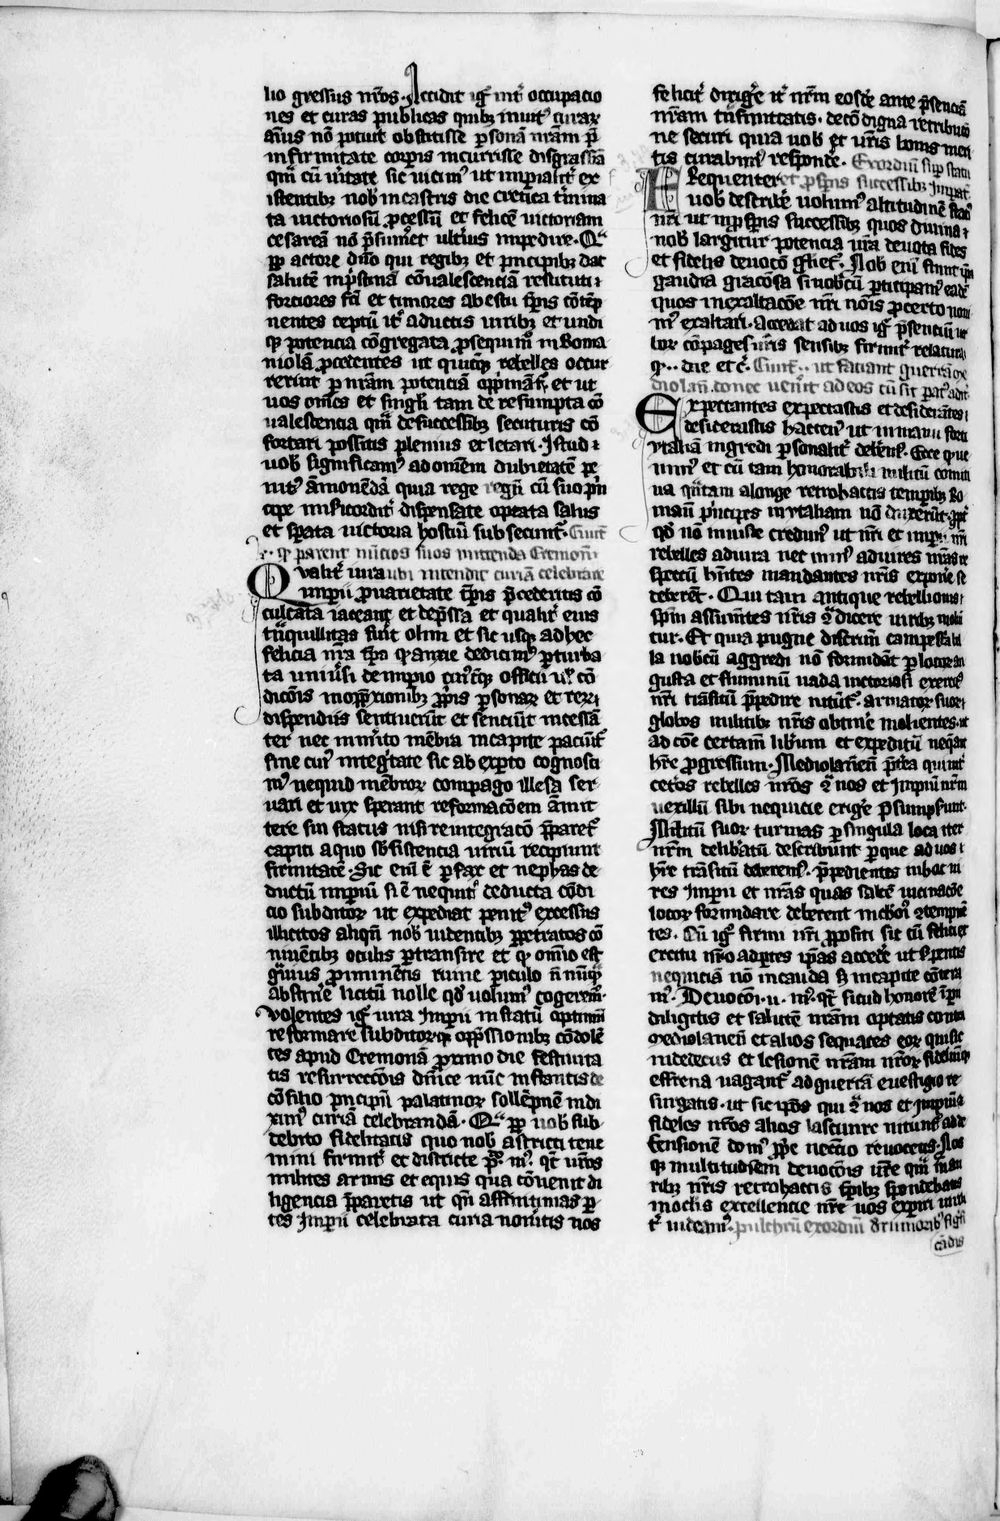 lio gressus nr̄os. Accidit igr̄ int̾ occupacio
nes et curas publicas quibꝫ inuit̾ curaꝝ
anus nō potuit obstitisse ꝑsonā nr̄am p̄
infirmitate corꝑis incurrisse
qm̄ cū ūitate sic uicim̾ ut imꝑialit̾ ex
istentibꝫ nob̾ in castris die cretica t̾mina
ta uictoriosū ꝓcessū et felicē uictoriam
cesareā nō p̄sumet ulteriꝰ impedire. Qa
ꝓp̾ actore dn̄o qui regibꝫ et principibꝫ dat
salutē conualescenciā restituti ⁊
forciores fc̄i et timores
nentes ceptū it̾ aductis uiribꝫ et undi
qꝫ potencia cōgregata ꝓsequim̾ in Roma
niolā ꝓcedentes ut quicūqꝫ rebelles occur
rerint ꝑ nr̄am potenciā oppm̄ant̾, et ut
uos om̄es et singl̾i tam de resumpta cō
ualescentia qm̄ de successibꝫ secuturis cō
fortari possitis plenius et letari. Istud ⁊
uob̾ significam̾ ad omnem dubietatē pe
nit̾ āmouendā quia rege regū cū suo pri
cipe misericordit̾ dispensāte optata salus
et sperata uictoria hostiū subsecunt̾.
qꝫ parent nūcios suos mittendo Cremonā
Qualit̾ iura ubi intendit curiā celebrare
imperii ꝓ uarietate tp̄is p̄cedentis cō
culcata iaceant et dep̄ssa et qualit̾ eius
tn̄quillitas fuit olim et sic usqꝫ ad hec
felicia nr̄a tp̄a ꝑturba
ta uniūsi de imperio
diconis inopp̄ssionibꝫ ꝓp̄is ꝑsonaꝝ et reꝝ ⁊
dispendiis sentiuerūt et senciūt incessā
ter nec inmerito mēbra in capite paciunt̾
sine cui̾ integritate sic ab exꝑto cognosci
m̾ nequid mēbroꝝ compago illesa ser
uari et uix sperant reformacōem amit
tere sin status nisi reintegracō p̄paret̾
capiti a quo sb̄sistencia uiriū recipiunt
firmitatē. Sic eni̅ ē ꝑ fax et nephas de
ductū imꝑiū si ē nequit̾ deducta cōdi
cio subditoꝝ ut expediat penit̾ excessus
illicitos aliqn̄ nob̾ uidentibꝫ ꝑpetratos cō
niuētibꝫ oculis ꝑtransire et qꝫ omn̄io est
gͣuius ꝓminentis ruine ꝑiculo
abstin̄e licitū nolle qd̾ uolum̾ cogerem̾.
Volentes igr̄ iura Imꝑii in statū optimū
reformare subditorūqꝫ opp̄ssionibꝫ cōdolē
tes apud Cremonā ꝓximo die festiuita
tis resurreccōis dn̄ice nūc instantis de
cōsilio principū palatinoꝝ sollēpnē indi
xim̾ curiā celebrandā. Qa ꝓp̾ uob̾ sub
debito fidelitatis quo nob̾ astricti tene
mini firmit̾ et districte p̄c̾. m̾. qt̾ ur̄os
milites armis et equis qua cōuenit di
ligencia p̄paretis ut qn̄ affuturimas ꝑ
tes Imꝑii celebrata curia nouitis nos
felicit̾ dirig̾e it̾ nr̄m eosdē ante p̄senciā
nr̄am tn̄smittatis. decō digna retribucō
ne securi quia uob̾ et ur̄is bonis meri
tis curabim̾ respondē. Exordiū sup̾ statu
Frequenter et ꝓspis successibꝫ Imꝑat̾
uob̾ describ̾e uolum̾ altitudinē status
nr̄i ut in ꝓsp̾is successibꝫ quos diuina ⁊
nob̾ largitur potencia ur̄a deuota fides
et fidelis deuocō
gaudia graciosa si uobiscū ꝑticipam̾ eadē
quos in exaltacōe nr̄i nōis ꝓcerto noui
m̾ exaltari. Accedat ad uos igr̄ p̄senciū ut
ur̄is sensibꝫ firmit̾
qꝫ.. die et c̾. Sciūt.. ut faciant guerrā
diolan̄. donec uenit ad eos cū sit parat̾
Expectantes expectastis et desiderātes ⁊
desiderastis hactenꝰ ut in manu forti
ytaliā ingredi ꝑsonalit̾ deberem̾. Ecce qꝫ ue
nim̾ et cū tam honorabili militū comit
ua qn̄tam alonge retrohactis temporibꝫ Ro
mani principes in ytaliam nō duxerūt
qd̾ nō iniuste credim̾ ut nr̄i et imꝑii nr̄i
rebelles aduira nec min̾ ad uires nr̄as re
spectū hn̄tes mandantes nr̄is exponē se
deberēt. Qui tam antique rebellionis ⁊
spm̄ assum̄tes nr̄is cͦdicere uiribꝫ moli
tur. Et quia pugne discrim̄ campessabi
la uobcū aggredi nō formidāt ꝑ locoꝝ an
gusta et fluminū uada uictoriosi exercit̾
nr̄i trāsitū p̄pedire nitūt̾. armatoꝝ suoꝝ ⁊
globos militibꝫ nr̄is obtin̄e molientes. ut
ad cōe certam̄ librium et expeditū neqͣant
hr̄e ꝓgressum. Mediolanen̄ p̄tea qui int̾
ceteros rebelles nr̄os cͦ nos et Imꝑiū nr̄m
uexillū sibi nequicie erig̾e p̄sumpserunt.
Militū suoꝝ turmas ꝑ singula loca iter
nr̄m delib̾atū describunt ꝑque ad uos ⁊
hr̄e trāsitū deberem̾. p̄pedientes
res Imꝑii et nr̄as quas saltē
locoꝝ formidare deberent
tes. Cū igr̄ firmi nr̄i ꝓpositi sit cū felici ex
ercitu ipas accedē ut
nequiciā nō in cauda s̄ in capite cōtera
m̾. Deuocōi. u. m̾. qt̾ sicud honorē īpii
diligitis et salutē nr̄am optatis contra
Mediolanen̄ et alios sequaces eoꝝ qui sic
in dedecus et lesionē nr̄am nr̄oꝝ fideliūqꝫ
effrena uagant̾ ad guerrā euestigio re
surgatis. ut sic ip̄os qui cͦ nos et Imꝑiū ⁊
fideles nr̄os alios lasciuire nitunt̾ ad de
fensionē dom̾ ꝓprie necessario reuocetis. Nos
qꝫ multitudinem deuocōis ur̄e
ribꝫ ur̄is retrohactis tp̄ibꝫ spondebatis
modis excellencie nr̄e uos exꝑiri
t̾ uideam̾. Pulchrū exordiū de rumoribꝫ signifi
cādis